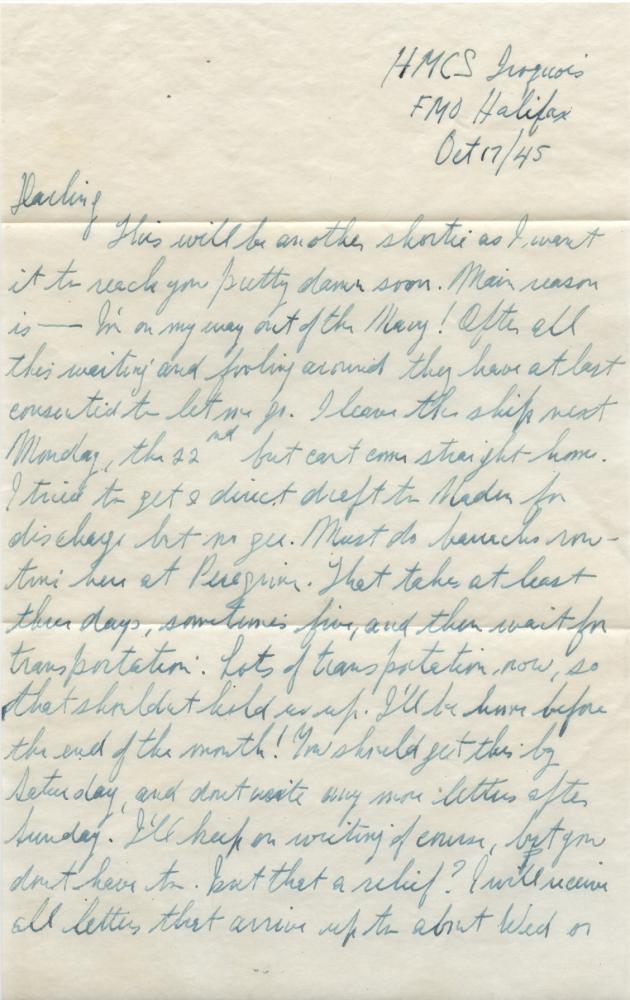 HMCS Iroquois
FMO Halifax
Oct 17/45
Darling
This will be another shortie as I want
it to reach you pretty damn soon. Main reason
is — I'm on my way out of the Navy! After all
this waiting and fooling around they have at last
consented to let me go. I leave the ship next
Monday, the 22nd but can't come straight home.
I tried to get a direct draft to Naden for
discharge but no go. Must do barracks rou-
tine here at Peregrine. That takes at least
three days, sometimes five, and then wait for
transportation. Lots of transportation now, so
that shouldnt hold us up. I'll be home before
the end of the month! You should get this by
Saturday, and dont write any more letters after
Sunday. I'll keep on writing of course, but you
don't have to. Isn't that a relief? I will receive
all letters that arrive up to about Wed or